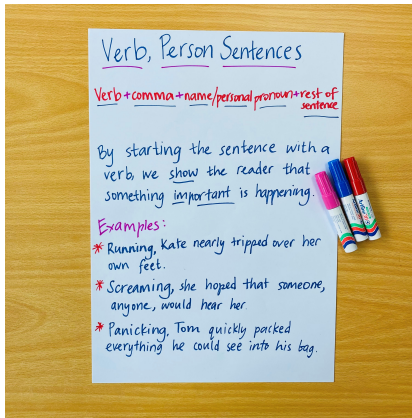 Verb, Person Sentences
Verb + comma + name/personal pronoun + rest of
sentence
By starting the sentence with a
verb, we show the reader that
something important is happening.
Examples:
* Running, Kate nearly tripped over her
own feet.
* Screaming, she hoped that someone,
anyone, would hear her.
* Panicking, Tom quickly packed
everything he could see into his bag.